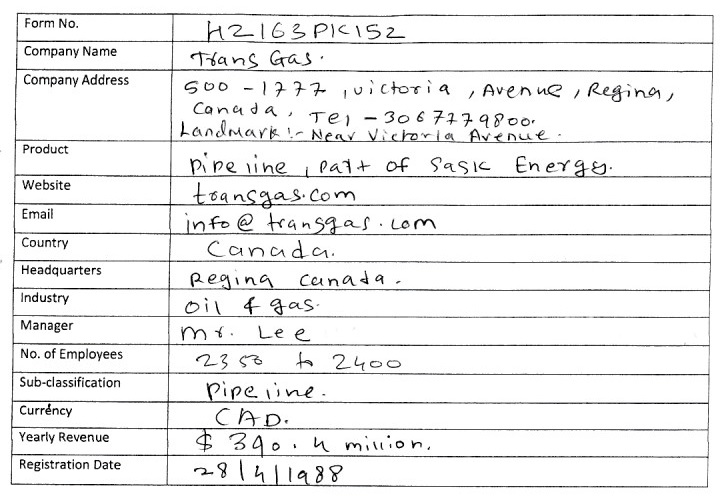 Form No. H2163PK152
Company Name Trans Gas.
Company Address 500 - 1777 , victoria , Avenue , Regina,
Canada, Tel - 3067779800.
Landmark :- Near Victoria Avenue.
Product Pipeline, Part of Sask Energy.
Website transgas.com
Email info@transgas.com
Country Canada.
Headquarters Regina Canada.
Industry oil & gas.
Manager Mr. Lee
No. of Employees 2350 to 2400
Sub-classification Pipeline.
Currency CAD.
Yearly Revenue $ 390.4 million.
Registration Date 28/4/1988